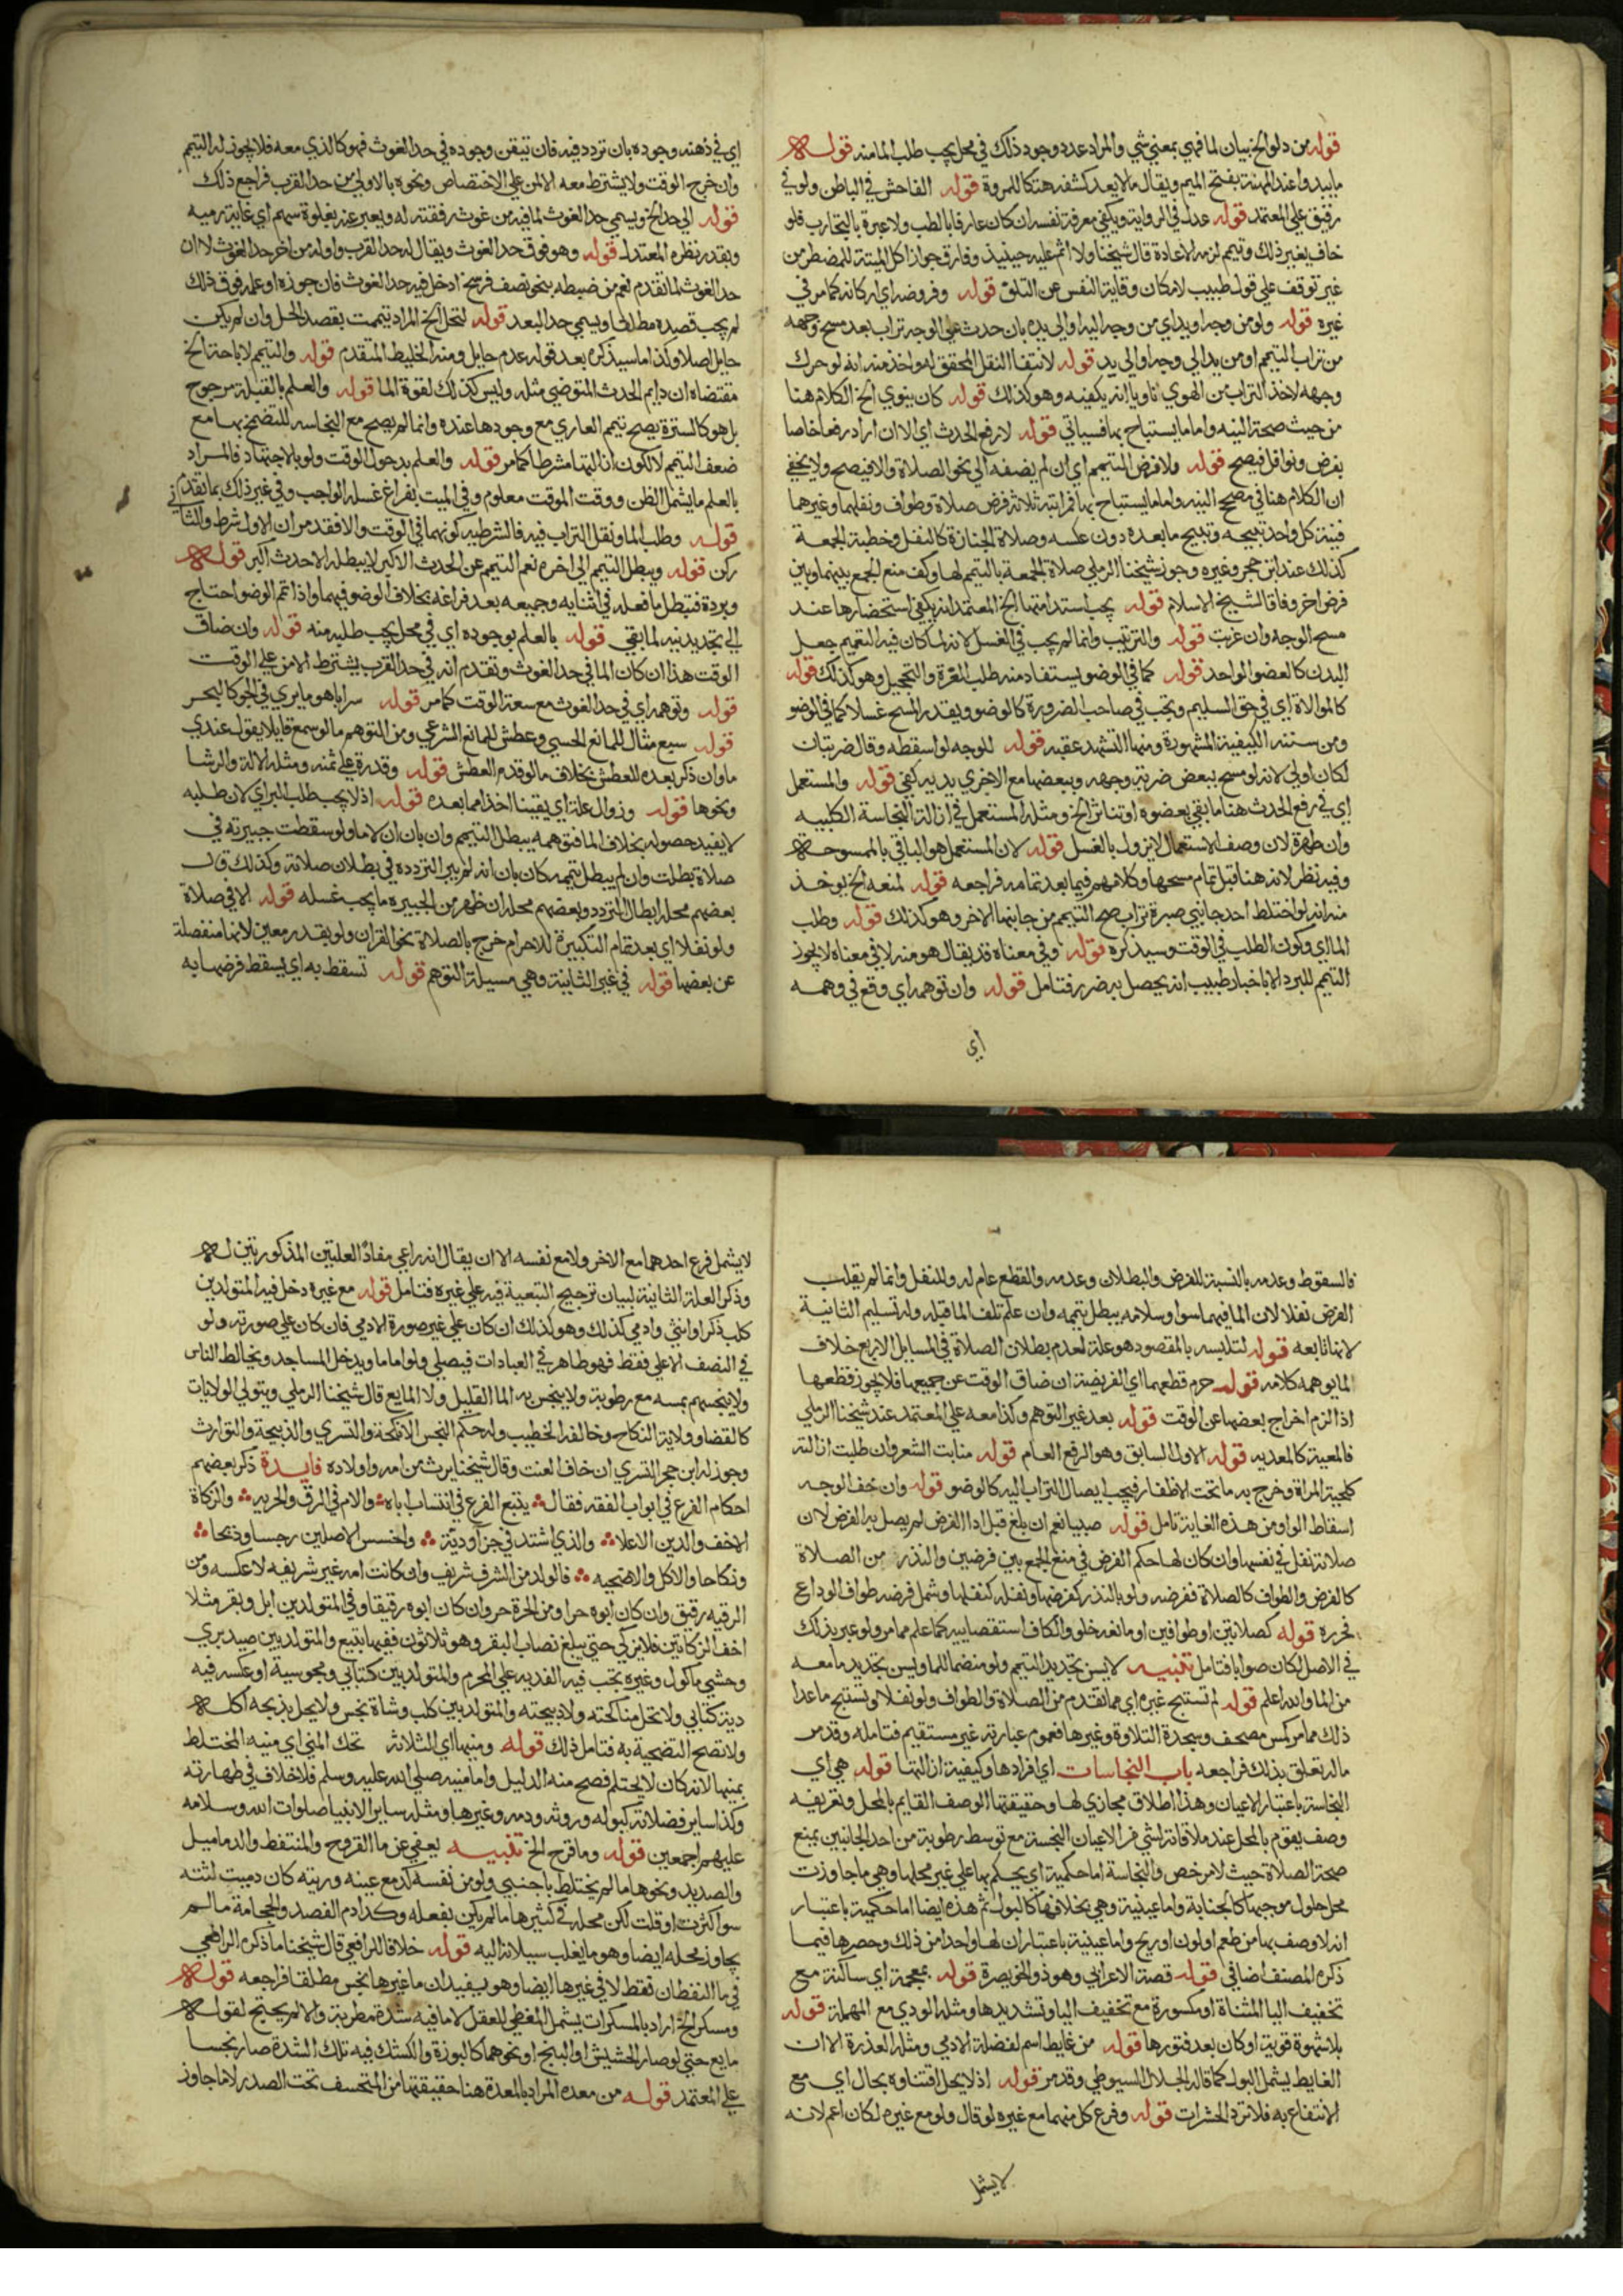 قوله من دلو الخ بيان لما فهي بمعني شي والمراد عدد وجود ذلك في محل يجب طلب الما منه قوله
ما يبدوا عند المهنة بفتح الميم ويقال ما لا يعد كشفه هتكا للمروة قوله الفاحش في الباطن ولو في
رقيق علي المعتمد قوله عدل في الرواية ويكفي معرفة نفسه ان كان عارفا بالطب ولا عبرة بالتجارب فلو
خاف بغير ذلك وتيمم لزمه الاعادة قال شيخنا ولا اثم عليه حينيذ وفارق جواز اكل الميتة للمضطر من
غير توقف علي قول طبيب لامكان وقاية النفس عن التلف قوله وفروضه اي اركانه كما مر في
غيره قوله ولو من وجه او يد اي من وجه اليه او الي يده بان حدث علي الوجه تراب بعد مسح وجهه
من تراب التيمم او من يد الي وجه او الي يد قوله لانتفا النقل المحقق له واخذ منه انه لو حرك
وجهه لاخذ التراب من الهوي ناويا انه يكفيه وهو كذلك قوله كان ينوي الخ الكلام هنا
من حيث صحة النيه واما ما يستباح بها فسياتي قوله لا رفع الحدث اي الا ان اراد رفعا خاصا
بفرض ونوافل فيصح قوله ولا فرض التيمم اي ان لم يضفه الي نحو الصلاة والا فيصح ولا يخفي
ان الكلام هنا في مصحح النيه واما ما يستباح بها فمراتبه ثلاثة فرض صلاة وطواف ونفلهما وغيرهما
فنية كل واحد تبيحه وتبيح ما بعده دون عكسه وصلاة الجنازة كالنفل وخطبة الجمعة
كذلك عند ابن حجر وغيره وجوز شيخنا الرملي صلاة الجمعة بالتيمم لها وكف منع الجمع بينهما وبين
فرض اخر وفاقا لشيخ الاسلام قوله يجب استدامتها الخ المعتمد انه يكفي استحضارها عند
مسح الوجه وان عزبت قوله والترتيب وانما لم يجب في الغسل لانه لما كان فيه التعميم جعل
البدن كالعضو الواحد قوله كما في الوضو يستفاد منه طلب الغرة والتحجيل وهو كذلك قوله
كالموالاة اي في حق السليم وتجب في صاحب الضرورة كالوضو ويقدر المسح غسلا كما في الوضو
ومن سننه الكيفية المشهورة ومنها التشهد عقبه قوله للوجه لو اسقطه وقال ضربتان
لكان اولي لانه لو مسح ببعض ضربة وجهه وببعضها مع الاخري يديه كفي قوله والمستعمل
اي في رفع الحدث هنا ما بقي بعضوه او تناثر الخ ومثله المستعمل في ازالة النجاسة الكلبيه
وان طهرة لان وصف الاستعمال لا يزول بالغسل قوله لان المستعمل هو الباقي بالممسوحة
وفيه نظر لانه هنا قبل تمام مسحها وكلامهم فيما بعد تمامه فراجعه قوله لمنعه الخ يوخذ
منه انه لو اختلط احد جانبي صبرة تراب صح التيمم من جانبها الاخر وهو كذلك قوله وطلب
الما اي وكون الطلب في الوقت وسيذكره قوله وفي معناه قد يقال هو منه لا في معناه لا يجوز
التيمم للبرد الا باخبار طبيب انه يحصل به ضرر فتامل قوله وان توهمه اي وقع في وهمه
اي
اي في ذهنه وجوده بان تردد فيه فان تيقن وجوده في حد الغوث فهو كالذي معه فلا يجوز له التيمم
وان خرج الوقت ولا يشترط معه الامن علي الاختصاص ونحوه بالاولي من حد القرب فراجع ذلك
قوله الي حد الخ ويسمي حد الغوث لما فيه من غوث رفقته له ويعبر عنه بغلوة سهم اي غاية رميه
وبقدر نظره المعتدل قوله وهو فوق حد الغوث ويقال له حد القرب واوله من اخر حد الغوث لا ان
حد الغوث لما تقدم نعم من ضبطه بنحو نصف فرسخ ادخل فيه حد الغوث فان جوزه او علمه فوق ذلك
لم يجب قصده مطلقا ويسمي حد البعد قوله لتحل الخ المراد يتممت بقصد الحل وان لم يكن
حايل اصلا وكذا ما سيذكره بعد قوله عدم حايل ومنه الخليط المتقدم قوله والتيمم لاباحة الخ
مقتضاه ان دايم الحدث المتوضي مثله وليس كذلك لقوة الما قوله والعلم بالقبلة مرجوح
بل هو كالسترة يصح تيمم العاري مع وجودها عنده وانما لم يصح مع النجاسه للتضمخ بها مع
ضعف التيمم لا لكون ازالتها شرطا كما مر قوله والعلم بدخول الوقت ولو بالاجتهاد فالمراد
بالعلم ما يشمل الظن ووقت الموقت معلوم وفي الميت بفراغ غسله الواجب وفي غير ذلك بما تقدم
قوله وطلب الما ونقل التراب فيه فالشرطيه كونهما في الوقت والا فقد مر ان الاول شرط والثاني
ركن قوله ويبطل التيمم الي اخره نعم التيمم عن الحدث الاكبر لا يبطله الا حدث اكبر قوله
وبردة فتبطل ما فعله في اثنايه وجميعه بعد فراغه بخلاف الوضو فيهما واذا تم الوضو احتاج
الي تجديد نيه لما بقي قوله بالعلم بوجوده اي في محل يجب طلبه منه قوله وان ضاق
الوقت هذا ان كان الما في حد الغوث وتقدم انه في حد القرب يشترط الامن علي الوقت
قوله وتوهمه اي في حد الغوث مع سعة الوقت كما مر قوله سرابا هو ما يري في الجو كالبحر
قوله سبع مثال للمانع الحسي وعطش للمانع الشرعي ومن التوهم ما لو سمع قايلا يقول عندي
ما وان ذكر بعده للعطش بخلاف ما لو قدم العطش قوله وقدرة علي ثمنه ومثله الالة والرشا
ونحوها قوله وزوال علة اي يقينا اخذا مما بعده قوله اذ لا يجب طلب البراي لان طلبه
لا يفيد حصوله بخلاف الما فتوهمه يبطل التيمم وان بان ان لا ما ولو سقطت جبيرته في
صلاة بطلت وان لم يبطل تيممه كان بان انه لم يبر التردده في بطلان صلاته وكذلك قال
بعضهم محله ابطال التردد وبعضهم محله ان ظهر من الجبيره ما يجب غسله قوله الا في صلاة
ولو نفلا اي بعد تمام التكبيرة للاحرام خرج بالصلاة نحو القران ولو بقدر معين لانها منفصلة
عن بعضها قوله في غير الثانية وهي مسيلة التوهم قوله تسقط به اي يسقط فرضها به
فالسقوط وعدمه بالنسبة للفرض والبطلان وعدمه والقطع عام له وللنفل وانما لم يقلب
الفرض نفلا لان الما فيهما سوا وسلامه يبطل تيممه وان علم تلف الما قبله وله تسليم الثانية
لانها تابعه قوله لتلبسه بالمقصود هو علة لعدم بطلان الصلاة في المسايل الاربع خلاف
لما يوهمه كلامه قوله حرم قطعها اي الفريضة ان ضاق الوقت عن جميعها فلا يجوز قطعها
اذا لزم اخراج بعضها عن الوقت قوله بعد غير التوهم وكذا معه علي المعتمد عند شيخنا الرملي
فالمعية كالمعديه قوله الاول السابق وهو الرفع العام قوله منابت الشعر وان طلبت ازالته
كلحية المراة وخرج به ما تحت الاظفار فيجب ايصال التراب اليه كالوضو قوله وان خف الوجه
اسقاط الواو من هذه الغاية تامل قوله صبيا نعم ان بلغ قبل ادا الفرض لم يصل به الفرض لان
صلاته نفل في نفسها وان كان لها حكم الفرض في منع الجمع بين فرضين والنذر من الصلاة
كالفرض والطواف كالصلاة ففرضه ولو بالنذر كفرضها ونفله كنفلها وشمل فرضه طواف الوداع
فحرره قوله كصلاتين او طوافين او مانعة خلو والكاف استقصاييه كما علم مما مر ولو عبر بذلك
في الاصل لكان صوابا فتامل تنبيه لا يسن تجديد التيمم ولو منضما للما ويسن تجديد ما معه
من الما والله اعلم قوله لم تستبح غيره اي مما تقدم من الصلاة والطواف ولو نفلا وتستبح ما عدا
ذلك مما مر كمس مصحف وسجدة التلاوة وغيرها فعموم عبارته غير مستقيم فتامله وقد مر
ما له تعلق بذلك فراجعه باب النجاسات اي افرادها وكيفية ازالتها قوله هي اي
النجاسة باعتبار الاعيان وهذا اطلاق مجازي لها وحقيقتها الوصف القايم بالمحل وتعريفه
وصف يقوم بالمحل عند ملاقاته لشي من الاعيان النجسة مع توسط رطوبة من احد الجانبين يمنع
صحة الصلاة حيث لا مرخص والنجاسة اما حكمية اي يحكم بها علي غير محلها وهي ما جاوزت
محل حلول موجبها كالجنابة واما عينية وهي بخلافها كالبول ثم هذه ايضا اما حكمية باعتبار
انه لا وصف بها من طعم او لون او ريح واما عينية باعتبار ان لها واحدا من ذلك وحصرها فيما
ذكره المصنف اضافي قوله قصة الاعرابي وهو ذو الخويصرة قوله بمعجمة اي ساكنة مع
تخفيف اليا المثناة او مكسورة مع تخفيف اليا وتشديدها ومثله الودي مع المهملة قوله
بلا شهوة قوية او كان بعد فتورها قوله من غايط اسم لفضلة الادمي ومثله العذرة الا ان
الغايط يشمل البول كما قاله الجلال السيوطي وقد مر قوله اذ لا يحل اقتناوه بحال اي مع
الانتفاع به فلا ترد الحشرات قوله وفرع كل منهما مع غيره لو قال ولو مع غيره لكان اعم لانه
لا يشمل
لا يشمل فرع احدهما مع الاخر ولا مع نفسه الا ان يقال انه راعي مفاد العلتين المذكورتين له
وذكر العلة الثانية لبيان ترجيح التبعية فيه علي غيره فتامل قوله مع غيره دخل فيه المتولد بين
كلب ذكر او انثي وادمي كذلك وهو كذلك ان كان علي غير صورة الادمي فان كان علي صورته ولو
في النصف الاعلي فقط فهو طاهر في العبادات فيصلي ولو اماما ويدخل المساجد ويخالط الناس
ولا ينجسهم بمسه مع رطوبة ولا ينجس به الما القليل ولا المايع قال شيخنا الرملي ويتولي الولايات
كالقضا وولاية النكاح وخالفه الخطيب وله حكم النجس الانكحة والتسري والذبيحة والتوارث
وجوز له ابن حجر التسري ان خاف العنت وقال شيخنا يرث من امه واولاده فايدة ذكر بعضهم
احكام الفرع في ابواب الفقه فقال يتبع الفرع في انتساب اباه والام في الرق والحريه والزكاة
الاخف والدين الاعلا والذي اشتد في جزا ودية واخس الاصلين رجسا وذبحا
ونكاحا والاكل والاضحيه فالولد من الشرف شريف وان كانت امه غير شريفه لا عكسه ومن
الرقيه رقيق وان كان ابوه حرا ومن الحرة حر وان كان ابوه رقيقا وفي المتولد بين ابل وبقر مثلا
اخف الزكاتين فلا يزكي حتي يبلغ نصاب البقر وهو ثلاثون ففيها تبيع والمتولد بين صيد بري
وحشي ماكول وغيره يجب فيه الفديه علي المحرم والمتولد بين كتابي ومجوسية او عكسه فيه
دية كتابي ولا تحل مناكحته ولا ذبيحته والمتولد بين كلب وشاة نجس ولا يحل بذبحه اكله
ولا تصح التضحية به فتامل ذلك قوله ومنيها اي الثلاثة تحك المني اي منيه المختلط
بمنيها لانه كان لا يحتلم فصح منه الدليل واما منيه صلي الله عليه وسلم فلا خلاف في طهارته
وكذا ساير فضلاته كبوله وروثه ودمه وغيرها ومثله ساير الانبيا صلوات الله وسلامه
عليهم اجمعين قوله وما قرح الخ تنبيه يعفي عن ما القروح والمنتفط والدماميل
والصديد ونحوها ما لم يختلط باجنبي ولو من نفسه كدمع عينه وريقه كان دميت لثته
سوا كثرت او قلت لكن محله في كثيرها ما لم يكن بفعله وكذا دم الفصد والحجامة ما لم
يجاوز محله ايضا وهو ما يغلب سيلانه اليه قوله خلافا للرافعي قال شيخنا ما ذكره الرافعي
في ما النفطان فقط لا في غيرها ايضا وهو يفيد ان ما غيرها نجس مطلقا فراجعه قوله
ومسكر الخ اراد بالمسكرات يشمل المغطي للعقل لا ما فيه شدة مطربة والا لم يحتج لقوله
مايع حتي لو صار الحشيش او البنج او نحوهما كالبوزة والكشك فيه تلك الشدة صار نجسا
علي المعتمد قوله من معده المراد بالمعدة هنا حقيقتها من المنخسف تحت الصدر لا ما جاوز